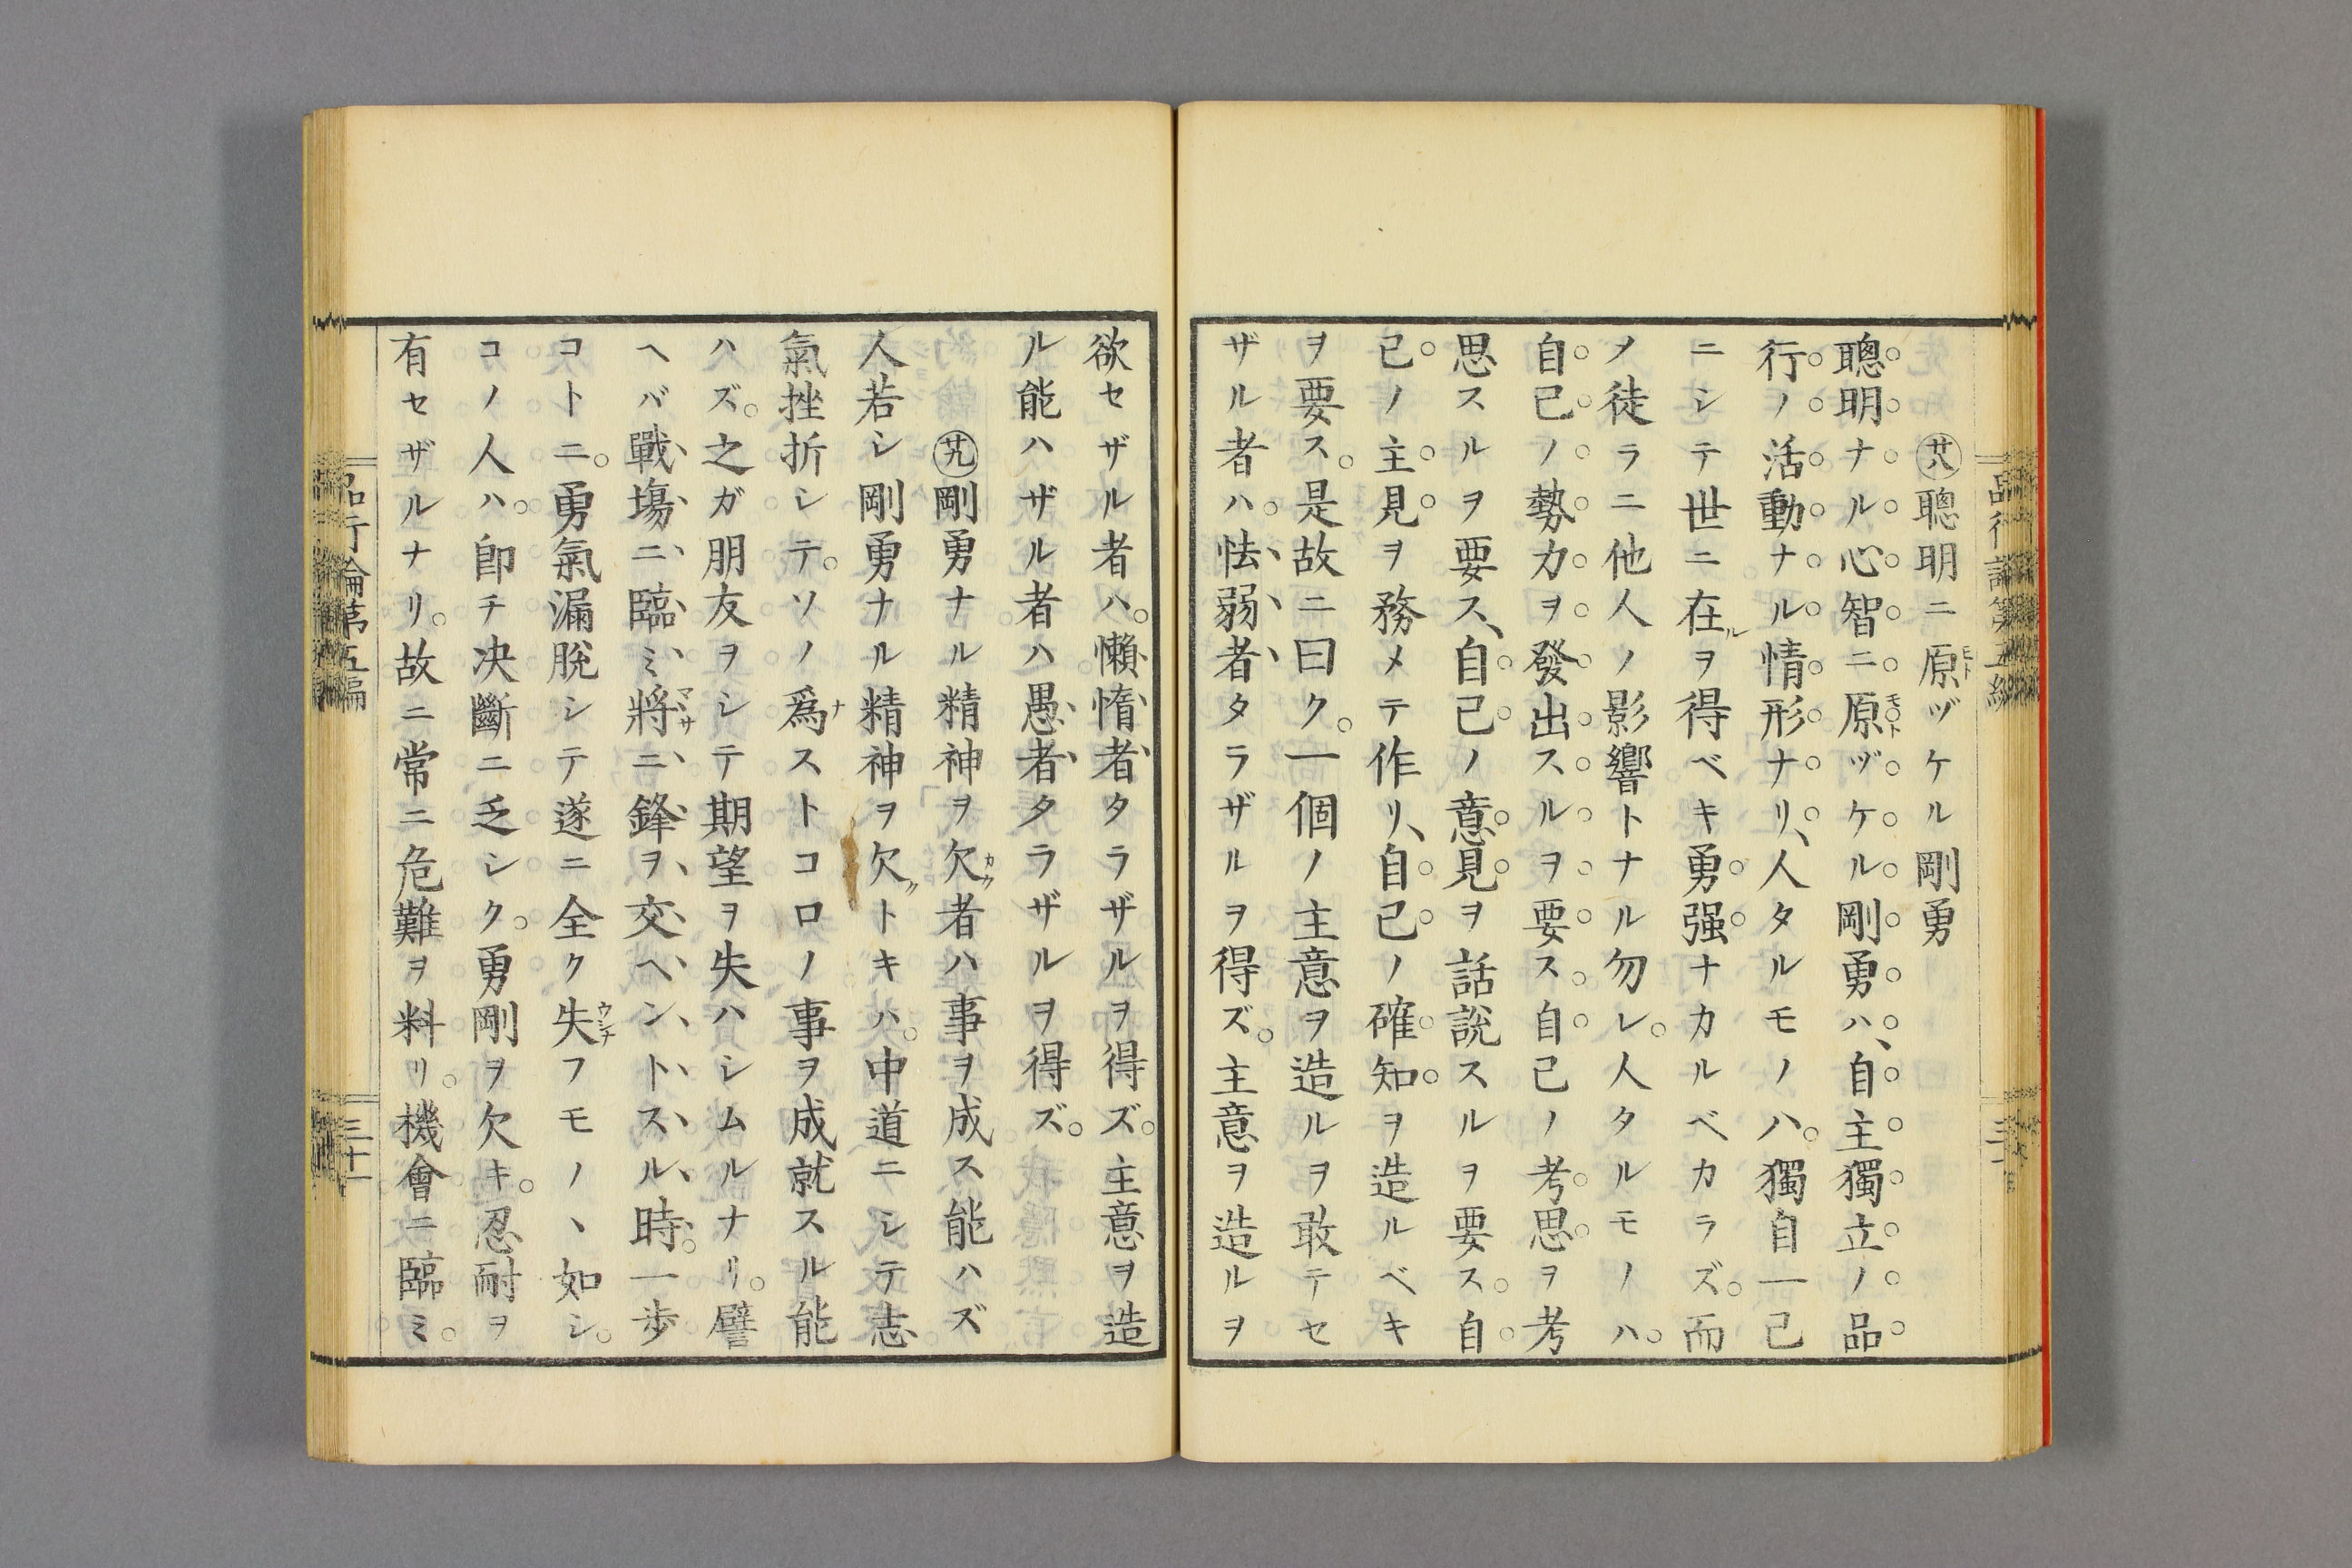 ㊇聰明ニ原ヅケル剛勇
聰明ナル心智ニ原ヅケル剛勇ハ、自主獨立ノ品
行ノ活動ナル情形ナリ、人タルモノハ。獨自一己
ニシテ世ニ在ルヲ得ベキ勇强ナカルベカラズ。而
ノ徒ラニ他人ノ影響トナル勿レ。人タルモノハ。
自己ノ勢力ヲ發出スルヲ要ス。自己ノ考思ヲ考
思スルヲ要ス、自己ノ意見ヲ話說スルヲ要ス。自
己ノ主見ヲ務メテ作リ、自己ノ確知ヲ造ルベキ
ヲ要ス。是故ニ曰ク。一個ノ主意ヲ造ルヲ敢テセ
ザル者ハ。怯弱者タラザルヲ得ズ。主意ヲ造ルヲ
欲セザル者ハ。懶惰者タラザルヲ得ズ。主意ヲ造
ル能ハザル者ハ愚者タラザルヲ得ズ。
剛勇ナル精神ヲ欠ク者ハ事ヲ成ス能ハズ
人若シ剛勇ナル精神ヲ欠クトキハ。中道ニシテ志
氣挫折シテ。ソノ爲ストコロノ事ヲ成就スル能
ハズ。之ガ朋友ヲシテ期望ヲ失ハシムルナリ。譬
ヘバ戰場ニ臨ミ將ニ鋒ヲ交ヘントスル時。一步
コトニ。勇氣漏脫シテ遂ニ全ク失フモノヽ如シ。
コノ人ハ。卽チ决斷ニ乏シク。勇剛ヲ欠キ。忍耐ヲ
有セザルナリ。故ニ常ニ危難ヲ料リ。機會ニ臨ミ。
品行論第五編
三十一